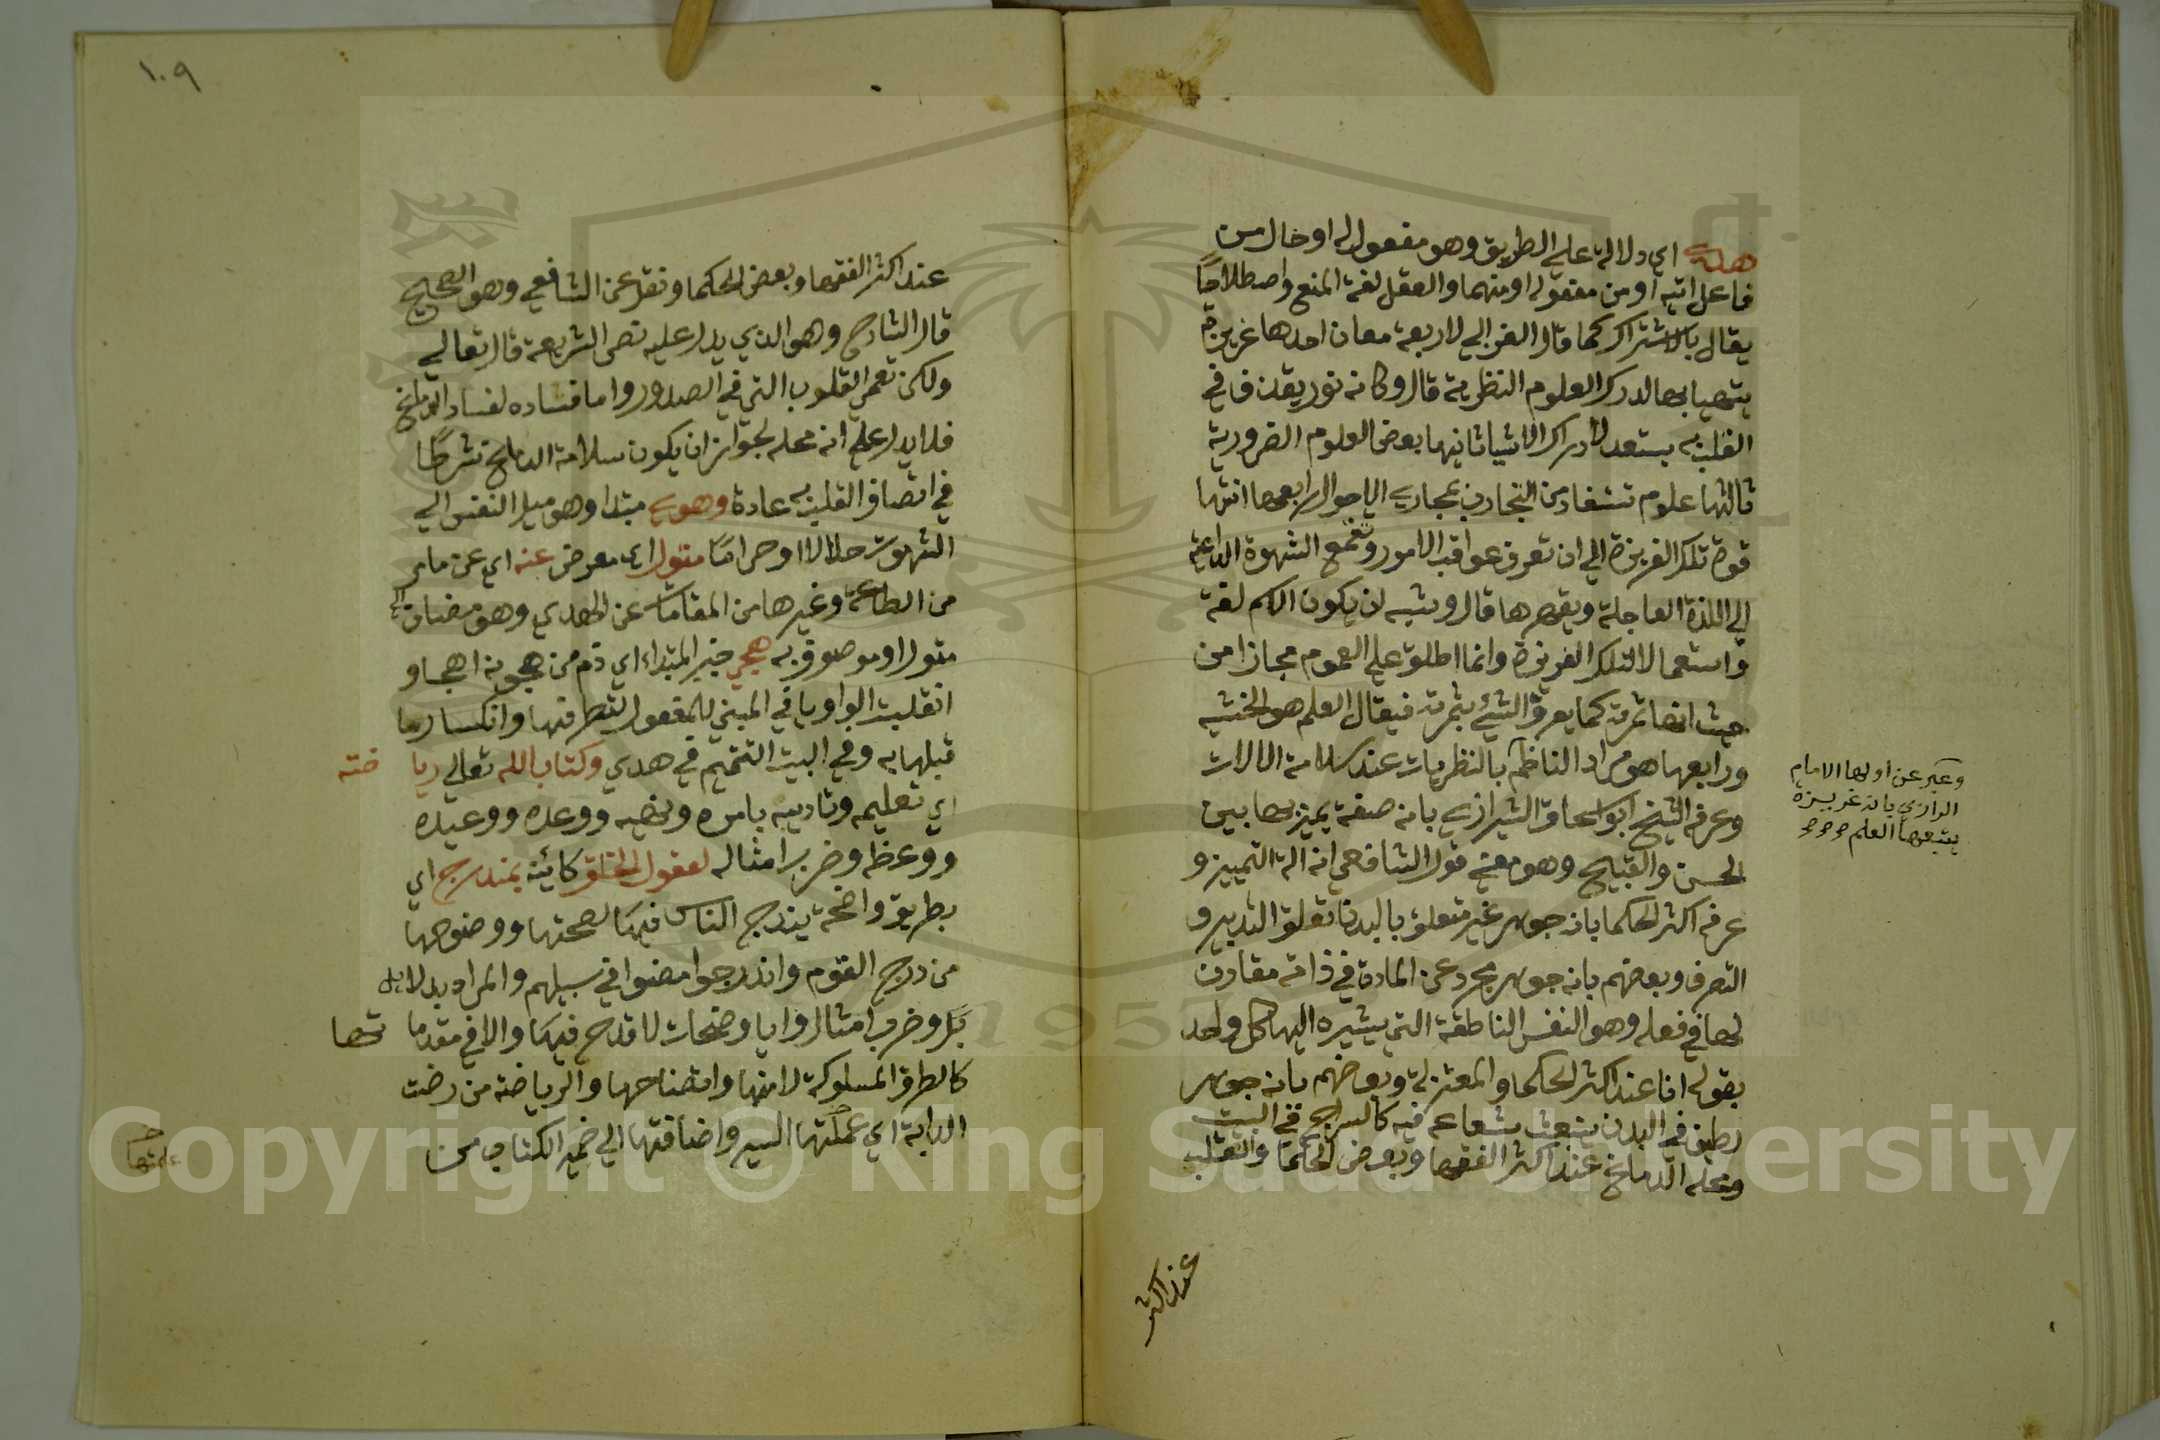 هدي اي دلالة علي الطريق وهو مفعول له او حال من
فاعل اتيه او من مفعوله او منهما والعقل لغة المنع واصطلاحًا
يقال بالاشتراك كما قال الغزالي لاربعة معان احدها غريزة
يتهيا بها لدرك العلوم النظرية قال وكانه نور يقذف في
القلب به يستعد لادراك الاشيا ثانيها بعض العلوم الضرورية
ثالثها علوم تستفاد من التجارب بمجاري الاحوال رابعها انتها
قوة تلك الغريزة الي ان تعرف عواقب الامور وتقمع الشهوة الداعية
الي اللذة العاجلة ويقهرها قال ويشبه ان يكون الاسم لغة
واستعمالا لتلك الغريزة وانما اطلق علي العموم مجازا من
حيث انها ثمرته كما يعرف الشيء بثمرته فيقال العلم هو الخشيه
ورابعها هو مراد الناظم بالنظريات عند سلامة الالات
وعرفه الشيخ ابو اسحاق الشيرازي بانه صفة يميز بها بين
الحسن والقبيح وهو معني قول الشافعي انه الة التمييز و
عرفه اكثر الحكما بانه جوهر غير متعلق بالبدن تعلق التدبير و
التصرف وبعضهم بانه جوهر مجرد عن المادة في ذاته مقارن
لها في فعله وهو النفس الناطقة التي يشير اليها كل واحد
بقوله انا عند اكثر الحكما والمعتزلة وبعضهم بانه جوهر
لطيف في البدن ينبعث شعاعه فيه كالسراج في البيت
ومحله الدماغ عند اكثر الفقها وبعض الحكما والقلب
وعبر عن اولها الامام
الرازي بانه غريزة
يتبعها العلم
عند اكثر
١٠٩
عند اكثر الفقها وبعض الحكما ونقل عن الشافعي وهو الصحيح
قال الشارح وهو الذي يدل عليه نص الشريعة قال تعالي
ولكن تعمي القلوب التي في الصدور واما فساده لفساد الدماغ
فلا يدل علي انه محله لجواز ان يكون سلامة الدماغ شرطا
في اتصاف القلب به عادة وهوي مبتدا وهو ميل النفس الي
الشهوت حلالا او حرامًا متول اي معرض عنه اي عن مامر
من الطاعة وغيرها من المقامات عن الهدي وهو مضاف الي
متول او موصوف به هجي خبر المبتدا اي ذم من هجوته اهجاو
انقلبت الواو يا في المبني للمفعول لتطرفها وانكسار ما
قبلها به وفي البيت التتميم في هدي وكتاب الله تعالي ريا ضته
اي تعليمه وتاديبه بامره ونهيه ووعده ووعيده
ووعظه وضرب امثاله لعقول الخلق كائنه بمندرج اي
بطريق واضحة يندرج الناس فيها لصحتها ووضوحها
من درج القوم واندرجوا مضوا في سبيلهم والمراد بدلايل
وضرب امثال وايا واضحات لا قدح فيها والا في مقدما تها
كالطرق المسلوكة لامنها واتضاحها والرياضة من رضت
الدابة اي علمتها السير واضافتها الي ضمير الكتاب من
علمتها
Copyright © King Saud University